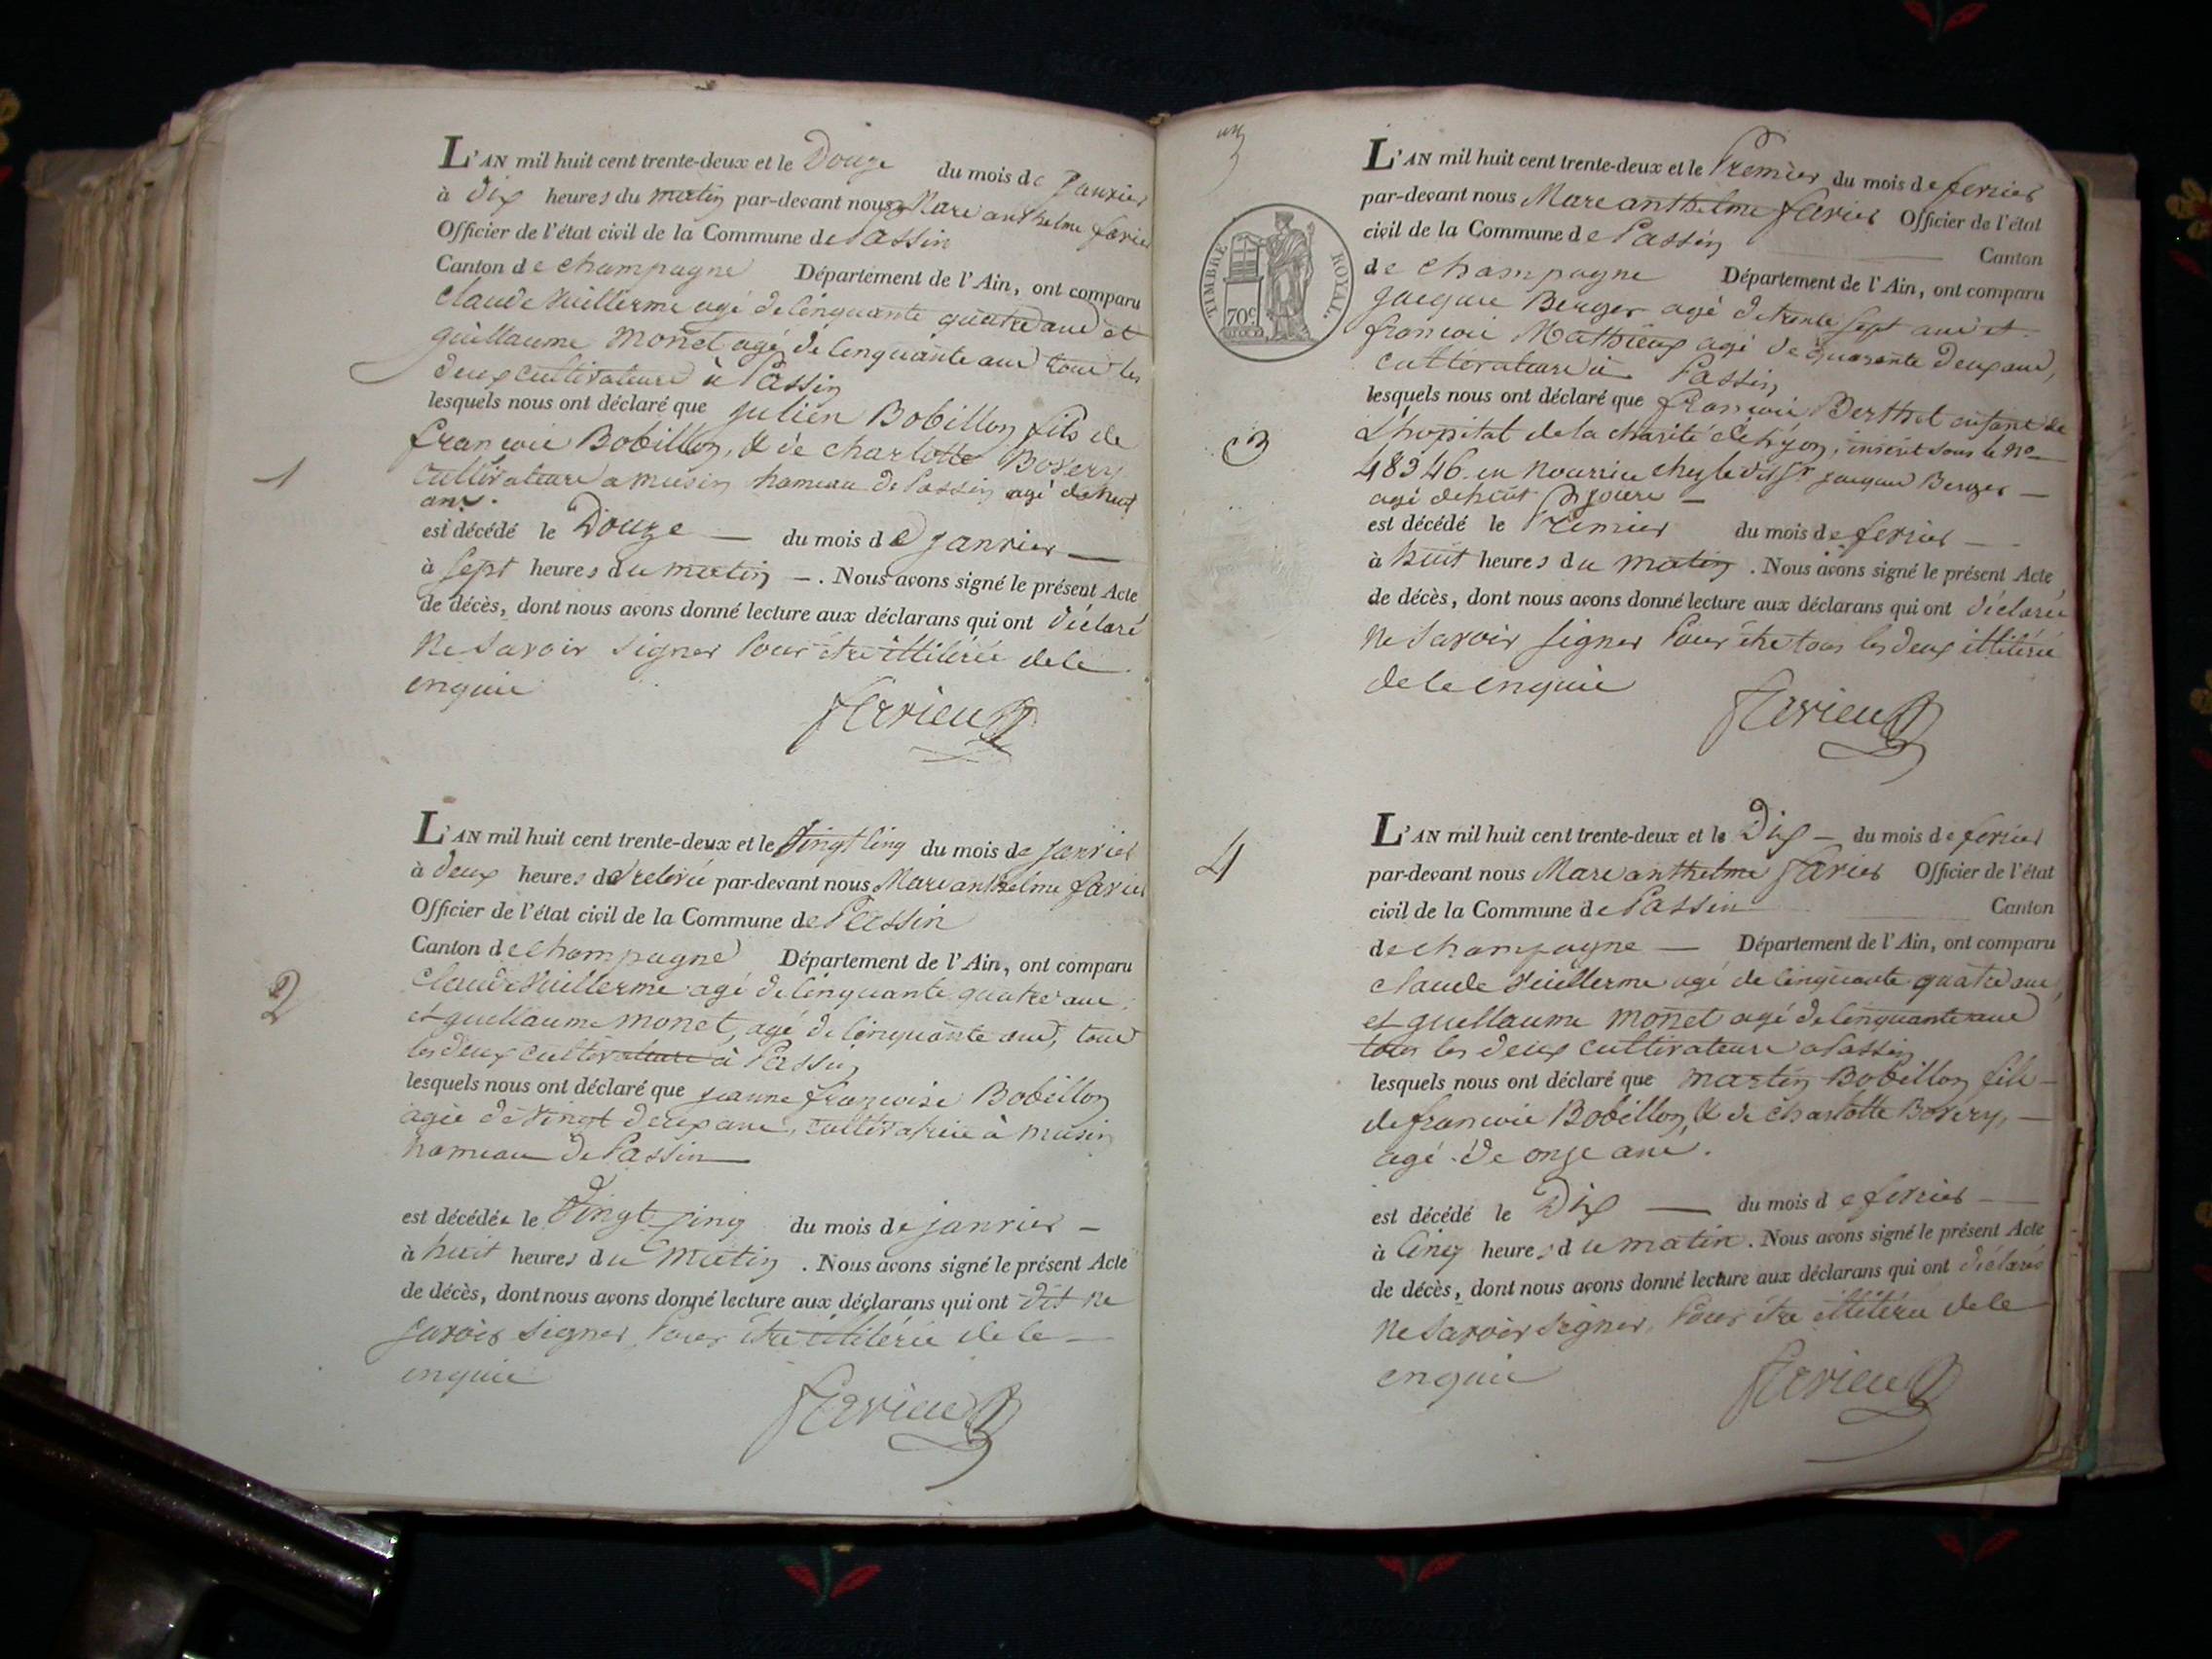 L'AN mil huit cent trente-deux et le Douze du mois de Janvier
à dix heures du matin par-devant nous Marc anthelme favier
Officier de l'état civil de la Commune de Passin
Canton de champagne Département de l'Ain, ont comparu
claude Vuillerme agé de cinquante quatre ans et
guillaume Monet agé de cinquante ans tous les
deux cultivateurs à Passin
lesquels nous ont déclaré que julien Bobillon fils de
francois Bobillon, & de charlotte Bovery
cultivateurs a musin hameau de Passin agé de huit
ans.
1
est décédé le Douze — du mois de janvier —
à sept heures du matin — . Nous avons signé le présent Acte
de décès, dont nous avons donné lecture aux déclarans qui ont déclaré
ne savoir signer Pour être illitérés de ce
enquis
favier
L'AN mil huit cent trente-deux et le Vingt cinq du mois de janvier
à deux heures de relevée par-devant nous Marc anthelme favier
Officier de l'état civil de la Commune de Passin
Canton de champagne Département de l'Ain, ont comparu
claude Vuillerme agé de cinquante quatre ans,
et guillaume monet, agé de cinquante ans, tous
les deux cultivateurs à Passin
2
lesquels nous ont déclaré que jeanne françoise Bobillon
agée de vingt deux ans, cultivatrice à musin
hameau de Passin —
est décédée le Vingt cinq du mois de janvier —
à huit heures du matin . Nous avons signé le présent Acte
de décès, dont nous avons donné lecture aux déclarans qui ont dit ne
savoir signer, Pour être illitérés de ce —
enquis
favier
TIMBRE ROYAL.
70c
L'AN mil huit cent trente-deux et le Premier du mois de fevrier
par-devant nous Marc anthelme favier Officier de l'état
civil de la Commune de Passin Canton
de champagne Département de l'Ain, ont comparu
jacques Berger agé de trente sept ans et
francois Mathieux agé de quarante deux ans,
cultivateurs à Passin
lesquels nous ont déclaré que francois Berthet enfant de
L'hopital de la charité de Lyon, inscrit sous le no
48346. en nourrice chez le dit Sr jacques Berger —
agé de huit jours —
3
est décédé le Premier du mois de fevrier —
à huit heures du matin . Nous avons signé le présent Acte
de décès, dont nous avons donné lecture aux déclarans qui ont déclarés
ne savoir signer Pour être tous les deux illitérés
de ce enquis
favier
L'AN mil huit cent trente-deux et le Dix — du mois de fevrier
par-devant nous Marc anthelme favier Officier de l'état
civil de la Commune de Passin Canton
de champagne — Département de l'Ain, ont comparu
claude Vuillerme agé de cinquante quatre ans,
et guillaume monet agé de cinquante ans
tous les deux cultivateurs a Passin
4
lesquels nous ont déclaré que martin Bobillon fils —
de francois Bobillon, & de charlotte Bovery, —
agé de onze ans.
est décédé le Dix — du mois de fevrier —
à cinq heures du matin . Nous avons signé le présent Acte
de décès, dont nous avons donné lecture aux déclarans qui ont déclarés
ne savoir signer, Pour être illitérés de ce
enquis
favier